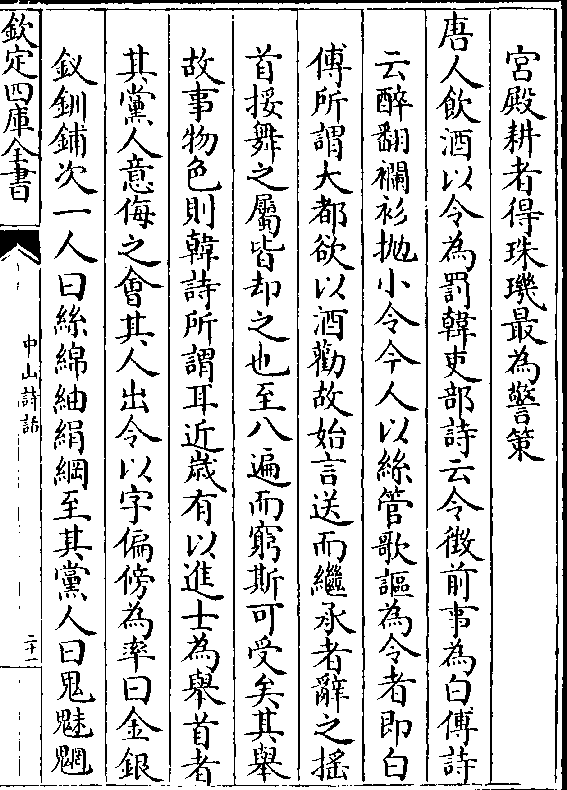 宫殿耕者得珠璣最為警策
唐人飲酒以令為罰韓吏部詩云令徵前事為白傅詩
云醉翻襴衫抛小令今人以絲管歌謳為令者即白
傅所謂大都欲以酒勸故始言送而繼承者辭之摇
首挼舞之屬皆却之也至八遍而窮斯可受矣其舉
故事物色則韓詩所謂耳近嵗有以進士為舉首者
其黨人意侮之會其人出令以字偏傍為率曰金銀
釵釧鋪次一人曰絲綿紬絹網至其黨人曰鬼魅魍
欽定四庫全書
中山詩話
二十一